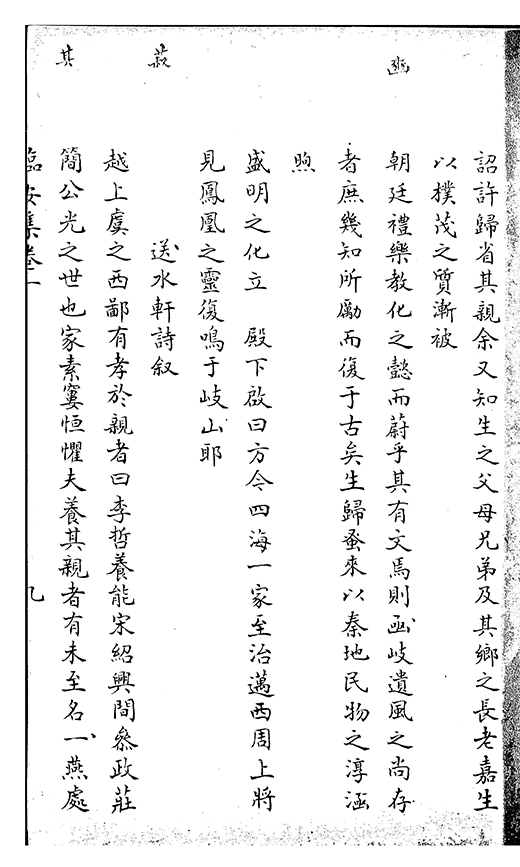 豳
菽
其
詔許歸省其親余又知生之父母兄弟及其鄉之長老嘉生
以樸茂之質漸被
朝廷禮樂教化之懿而蔚乎其有文焉則豳岐遺風之尚存
者庶幾知所勵而復于古矣生歸蚤來以秦地民物之淳涵
煦
盛明之化立　殿下啟曰方今四海一家至治邁西周上將
見鳳凰之靈復鳴于岐山耶
送水軒詩叙
越上虞之西鄙有孝於親者曰李哲養能宋紹興間叅政莊
簡公光之世也家素窶恒懼夫養其親者有未至名一燕處
臨安集卷二
九